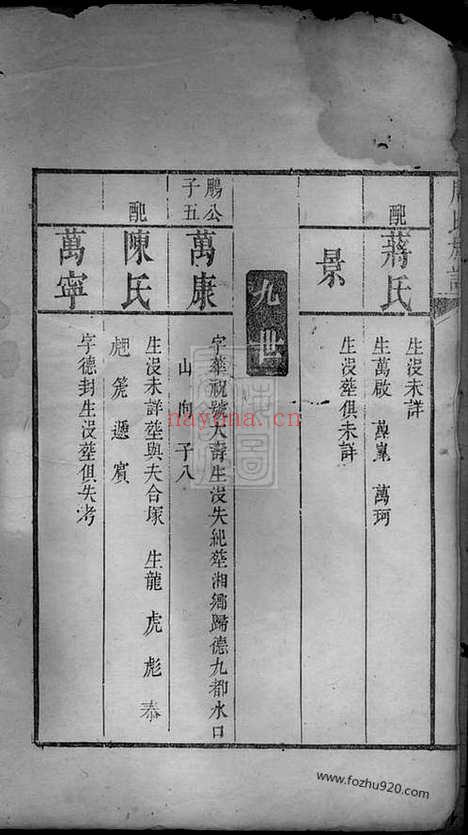 配
蔣氏
生沒未詳
生萬啟 萬嵩 萬珂
景
生沒塟俱未詳
九世
鵬公
子五
萬康
字華祝號大壽生沒失紀塟湘鄉歸德九都水口
山 向 子八
配
陳氏
生沒未詳塟與夫合塚 生龍 虎 彪 奉
彪 箎 遞 賓
萬寧
字德封生沒塟俱失考
nayona.cn
www.fozhu920.com